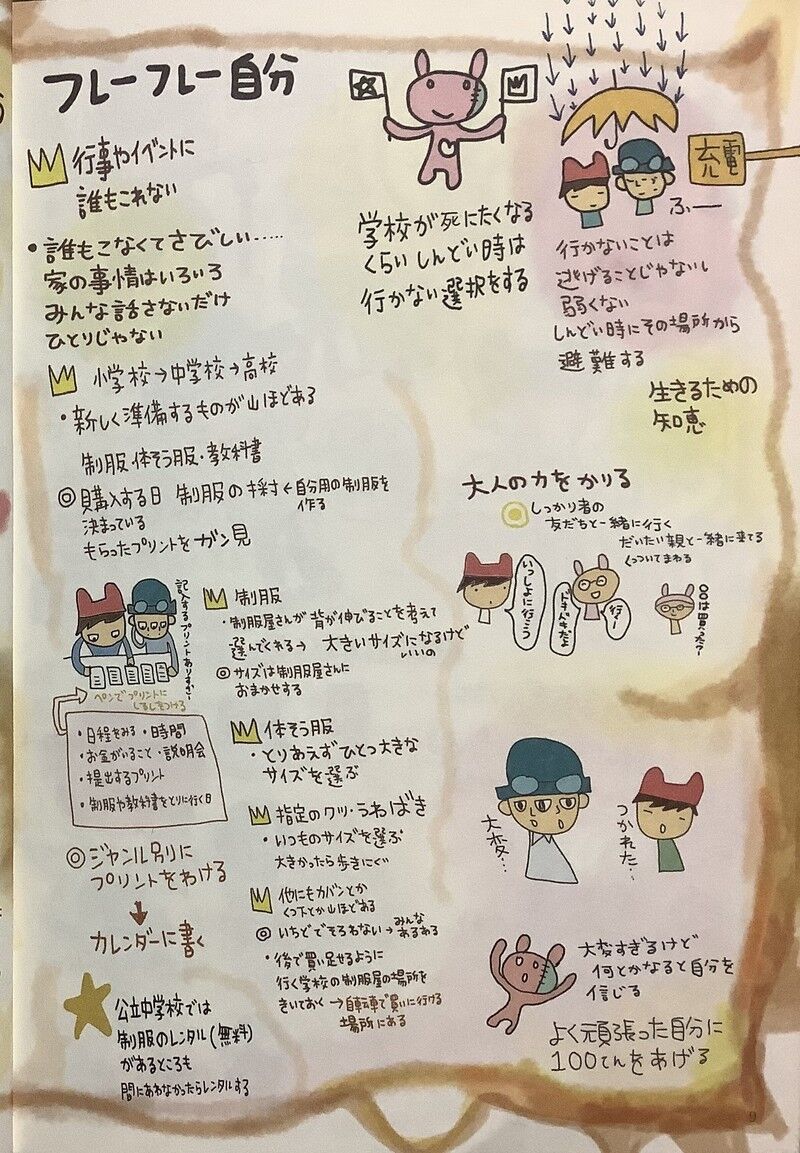 フレーフレー自分
行事やイベントに
誰もこれない
・誰もこなくてさびしい……
家の事情はいろいろ
みんな話さないだけ
ひとりじゃない
小学校→中学校→高校
・新しく準備するものが山ほどある
制服・体そう服・教科書
◎購入する日
決まっている
制服の採寸←自分用の制服を
作る
もらったプリントをガン見
記入するプリントありすぎ…
ペンでプリントに
しるしをつける
・日程をみる・時間
・お金がいること・説明会
・提出するプリント
・制服や教科書をとりに行く日
◎ジャンル別に
プリントをわける
↓
カレンダーに書く
公立中学校では
制服のレンタル(無料)
があるところも
間にあわなかったらレンタルする
制服
・制服屋さんが背が伸びることを考えて
選んでくれる→大きいサイズになるけど
いいの
◎サイズは制服屋さんに
おまかせする
体そう服
・とりあえずひとつ大きな
サイズを選ぶ
指定のクツ・うわばき
・いつものサイズを選ぶ
大きかったら歩きにくい
他にもカバンとか
くつ下とか山ほどある
◎いちどでそろわない→みんな
あるある
・後で買い足せるように
行く学校の制服屋の場所を
きいておく→自転車で買いに行ける
場所にある
学校が死にたくなる
くらいしんどい時は
行かない選択をする
充電
ふー
行かないことは
逃げることじゃないし
弱くない
しんどい時にその場所から
避難する
生きるための
知恵
大人の力をかりる
しっかり者の
友だちと一緒に行く
だいたい親と一緒に来てる
くっついてまわる
いっしょに行こう
ドキドキだよ
行こー
○○は買った?
大変…
つかれた…
大変すぎるけど
何とかなると自分を
信じる
よく頑張った自分に
100てんをあげる
9